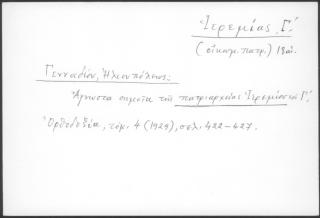 Ἱερεμίας, Γ΄.
(οἰκουμ. πατρ.) 18αἰ.
Γενναδίου, Ἡλιουπόλεως:
Ἄγνωστα σημεῖα τῆς πατριαρχείας Ἱερεμίου τοῦ Γ΄,
Ὀρθοδοξία, τόμ. 4 (1929), σελ. 422-427.